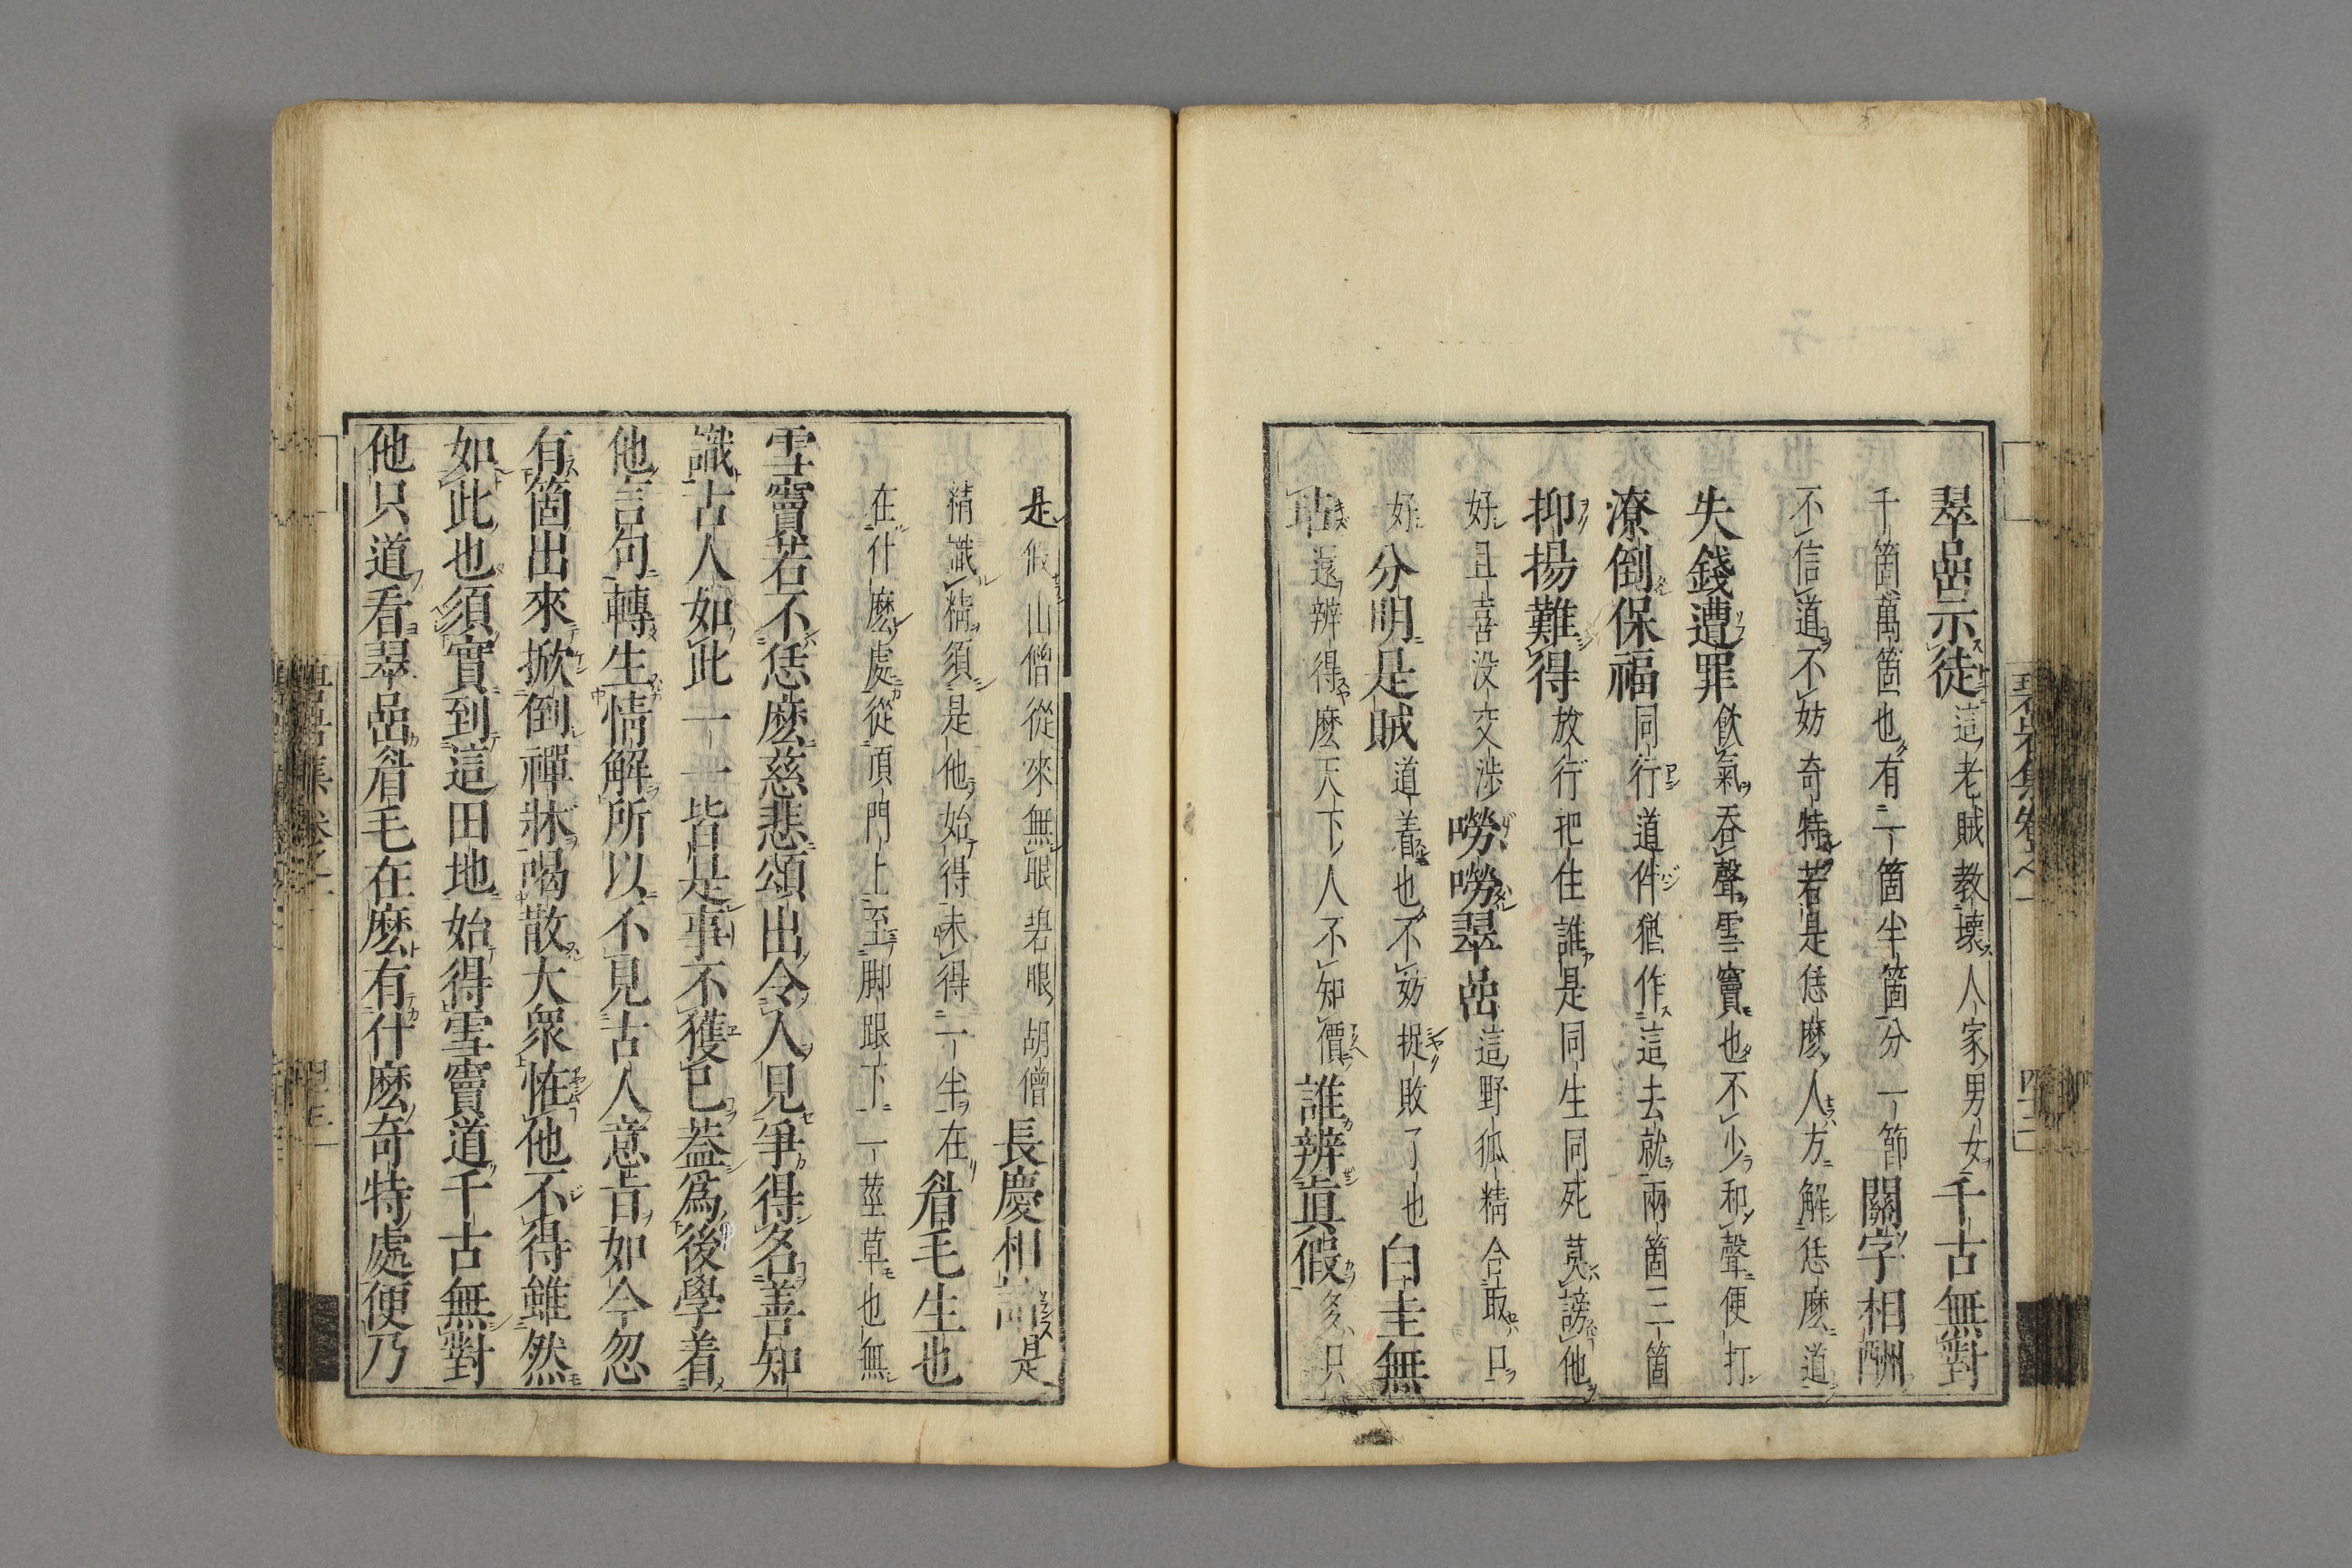 翠嵒示徒這老賊教壞人家男女千古無對
千箇萬箇也有一箇半箇分一節關字相酬
不信道不妨奇特若是恁麼人方解恁麼道
失錢遭罪飲氣吞聲雪竇也不少和聲便打
潦倒保福同行道伴猶作這去就兩箇三箇
抑揚難得放行把住誰是同生同死莫謗他
好且喜没交渉嘮嘮翠嵒這野狐精合取口
好分明是賊道着也不妨捉敗了也白圭無
玷還辨得麼天下人不知價誰辨眞假多只
是假山僧從來無眼碧眼胡僧長慶相諳是
精識精須是他始得未得一半在眉毛生也
在什麼處從頂門上至脚跟下一莖草也無
雪竇若不恁麼慈悲頌出令人見爭得名善知
識古人如此一一皆是事不獲已蓋爲後學着
他言句轉生情解所以不見古人意旨如今忽
有箇出來掀倒禪牀喝散大衆恠他不得雖然
如此也須實到這田地始得雪竇道千古無對
他只道看翠嵒眉毛在麼有什麼奇特處便乃